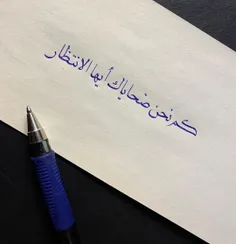 كم نحن ضحاياك أيها الانتظار